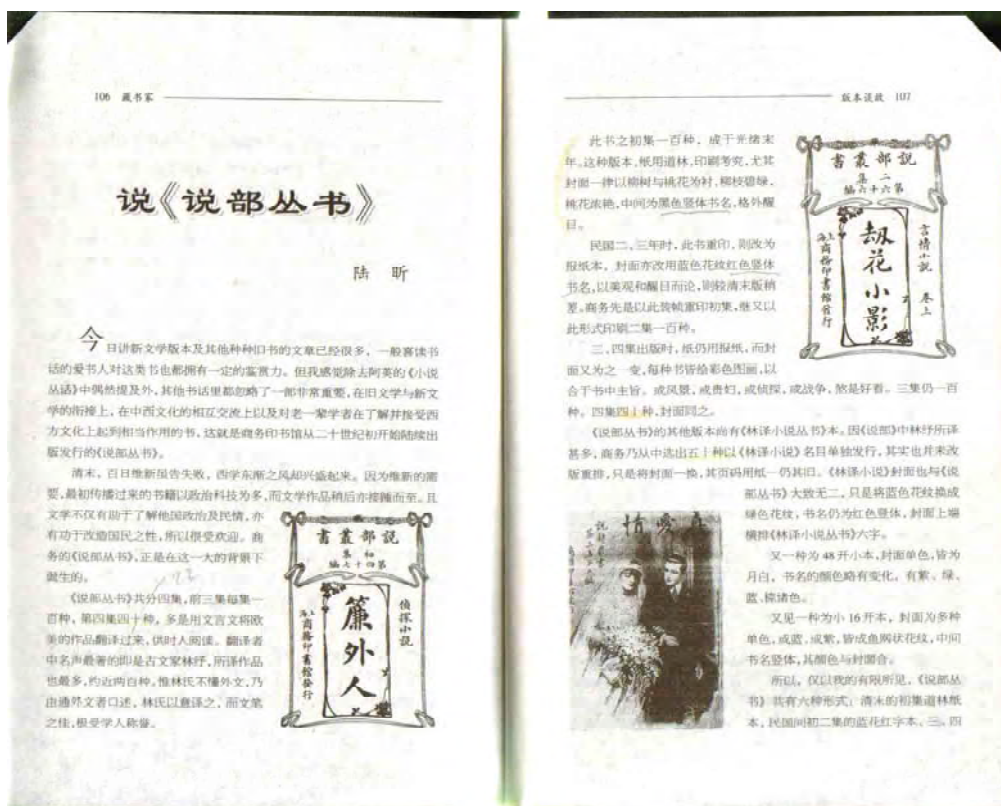 106 藏书家
说《说部丛书》
陆 昕
今日讲新文学版本及其他种种旧书的文章已经很多，一般喜读书
话的爱书人对这类书也都拥有一定的鉴赏力。但我感觉除去阿英的《小说
丛话》中偶然提及外，其他书话里都忽略了一部非常重要，在旧文学与新文
学的衔接上，在中西文化的相互交流上以及对老一辈学者在了解并接受西
方文化上起到相当作用的书，这就是商务印书馆从二十世纪初开始陆续出
版发行的《说部丛书》。
清末，百日维新虽告失败，西学东渐之风却兴盛起来。因为维新的需
要，最初传播过来的书籍以政治科技为多，而文学作品稍后亦接踵而至。且
文学不仅有助于了解他国政治及民情，亦
有功于改造国民之性，所以很受欢迎。商
务的《说部丛书》，正是在这一大的背景下
诞生的。
《说部丛书》共分四集，前三集每集一
百种，第四集四十种，多是用文言文将欧
美的作品翻译过来，供时人阅读。翻译者
中名声最著的即是古文家林纾，所译作品
也最多，约近两百种。惟林氏不懂外文，乃
由通外文者口述，林氏以意译之，而文笔
之佳，极受学人称誉。
說部叢書
初集
第四十七編
偵探小說
簾外人
上海商務印書館發行
版本谈故 107
此书之初集一百种，成于光绪末
年。这种版本，纸用道林，印刷考究，尤其
封面一律以柳树与桃花为衬，柳枝碧绿，
桃花浓艳，中间为黑色竖体书名，格外醒
目。
民国二、三年时，此书重印，则改为
报纸本，封面亦改用蓝色花纹红色竖体
书名，以美观和醒目而论，则较清末版稍
差。商务先是以此装帧重印初集，继又以
此形式印刷二集一百种。
三、四集出版时，纸仍用报纸，而封
面又为之一变，每种书皆绘彩色图画，以
合于书中主旨。或风景，或贵妇，或侦探，或战争，煞是好看。三集仍一百
种。四集四十种，封面同之。
《说部丛书》的其他版本尚有《林译小说丛书》本。因《说部》中林纾所译
甚多，商务乃从中选出五十种以《林译小说》名目单独发行，其实也并未改
版重排，只是将封面一换，其页码用纸一仍其旧。《林译小说》封面也与《说
部丛书》大致无二，只是将蓝色花纹换成
绿色花纹，书名仍为红色竖体，封面上端
横排《林译小说丛书》六字。
又一种为48开小本，封面单色，皆为
月白，书名的颜色略有变化，有紫、绿、
蓝、棕诸色。
又见一种为小16开本，封面为多种
单色，或蓝、或紫，皆成鱼网状花纹，中间
书名竖体，其颜色与封面合。
所以，仅以我的有限所见，《说部丛
书》共有六种形式：清末的初集道林纸
本，民国间初二集的蓝花红字本，三、四
說部叢書
二集
第六十六編
言情小說 卷上
劫花小影
上海商務印書館發行
真愛情